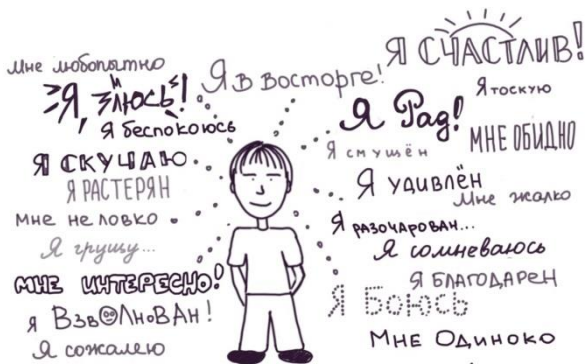 Мне любопытно
Я злюсь!
Я беспокоюсь
Я скучаю
Я РАСТЕРЯН
Мне неловко
Я грущу...
МНЕ ИНТЕРЕСНО!
Я ВзвОлНоВАн!
Я сожалею
Я в восторге!
Я СЧАСТЛИВ!
Я тоскую
Я Рад!
МНЕ ОБИДНО
Я смущён
Я удивлён
Мне жалко
Я РАЗОЧАРОВАН...
Я сомневаюсь
Я БЛАГОДАРЕН
Я Боюсь
МНЕ ОДИНОКО